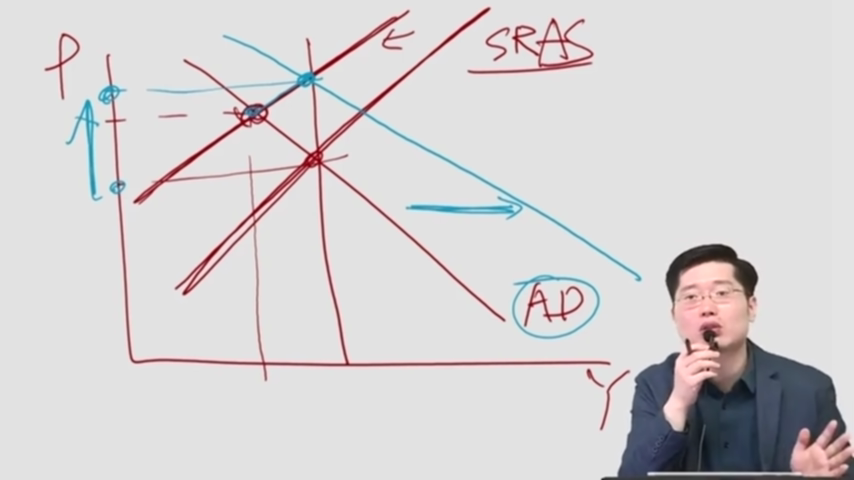 P
SRAS
AD
Y